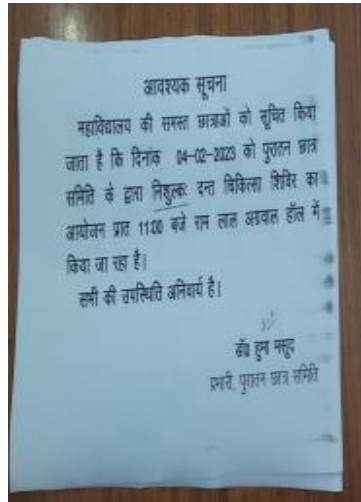 आवश्यक सूचना
महाविद्यालय की समस्त छात्राओं को सूचित किया
जाता है कि दिनांक 04-02-2023 को पुरातन छात्र
समिति के द्वारा निशुल्क दन्त चिकित्सा शिविर का
आयोजन प्रात 11:00 बजे राम लाल अग्रवाल हॉल में
किया जा रहा है।
सभी की उपस्थिति अनिवार्य है।
डॉ0 हुमा मसूद
प्रभारी, पुरातन छात्र समिति